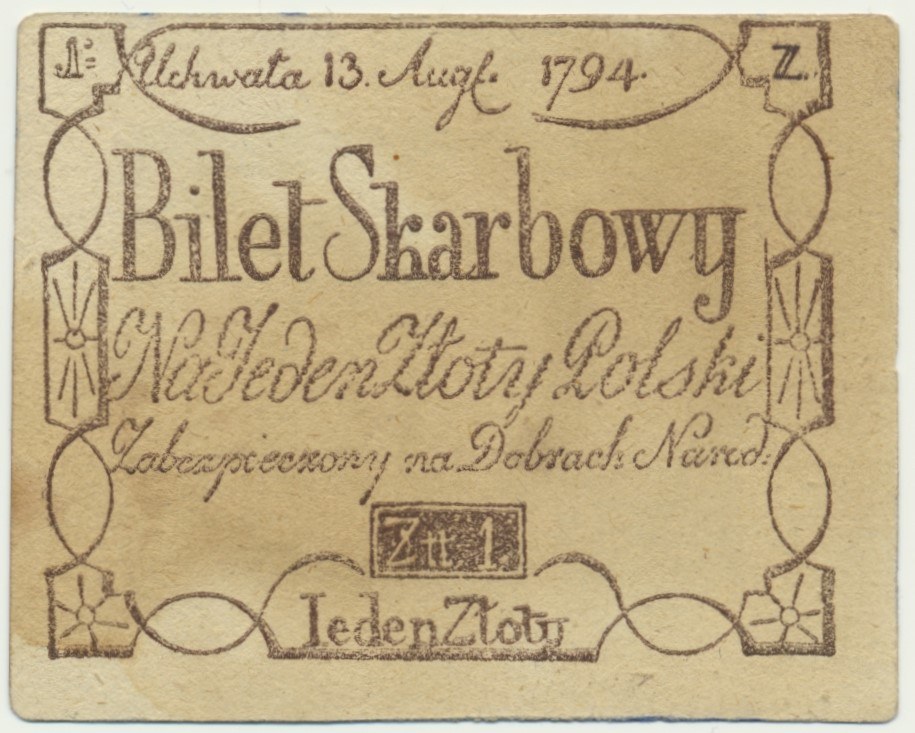 1= Uchwała 13. Augt. 1794. Z.
Bilet Skarbowy
Na Jeden Złoty Polski
Zabezpieczony na Dobrach Narod:
Złł 1.
Jeden Złoty